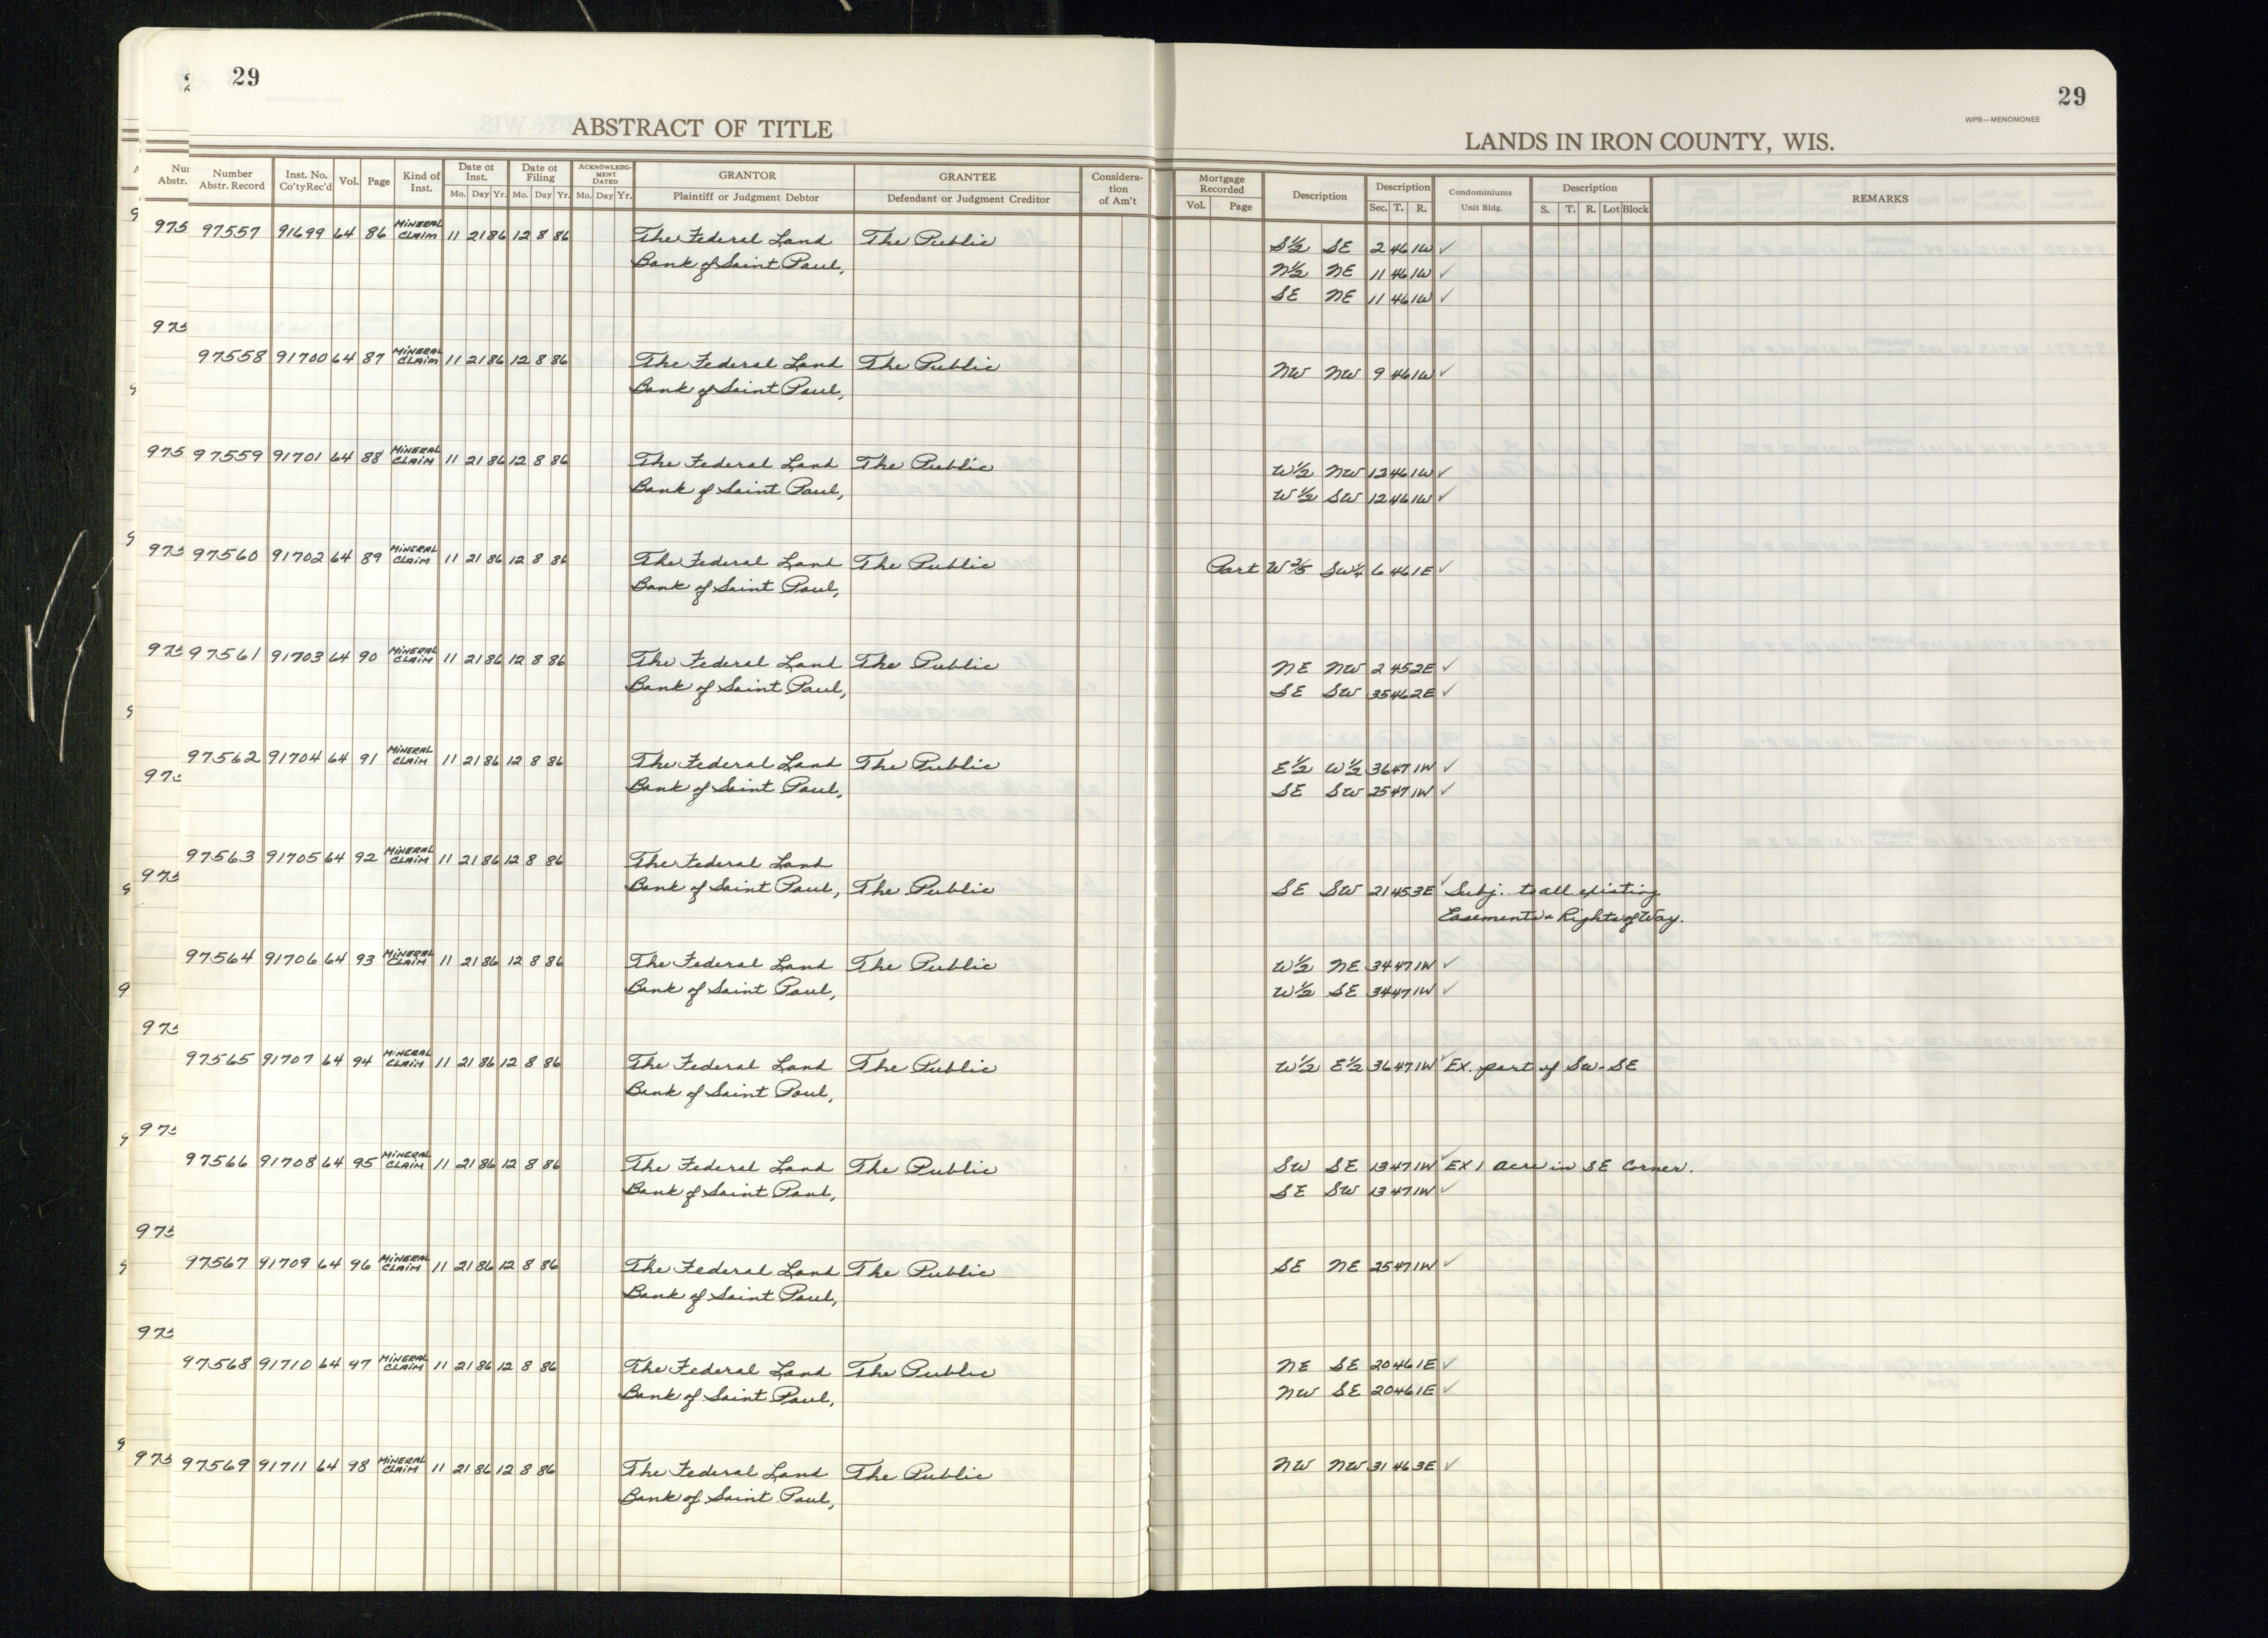 29
29
ABSTRACT OF TITLE
LANDS IN IRON COUNTY, WIS.
WPB—MENOMONEE
Number Abstr. Record Inst. No. Co'ty Rec'd Vol. Page Kind of Inst. Date of Inst. Mo. Day Yr. Date of Filing Mo. Day Yr. ACKNOWLEDGMENT DATED Mo. Day Yr. GRANTOR Plaintiff or Judgment Debtor GRANTEE Defendant or Judgment Creditor Consideration of Am't Mortgage Recorded Vol. Page Description Description Sec. T. R. Condominiums Unit Bldg. Description S. T. R. Lot Block REMARKS
97557 91699 64 86 MINERAL CLAIM 11 21 86 12 8 86 The Federal Land The Public S½ SE 2 46 1W ✓
Bank of Saint Paul, N½ NE 11 46 1W ✓
SE NE 11 46 1W ✓
97558 91700 64 87 MINERAL CLAIM 11 21 86 12 8 86 The Federal Land The Public NW NW 9 46 1W ✓
Bank of Saint Paul,
97559 91701 64 88 MINERAL CLAIM 11 21 86 12 8 86 The Federal Land The Public W½ NW 12 46 1W ✓
Bank of Saint Paul, W½ SW 12 46 1W ✓
97560 91702 64 89 MINERAL CLAIM 11 21 86 12 8 86 The Federal Land The Public Part W⅗ SW¼ 6 46 1E ✓
Bank of Saint Paul,
97561 91703 64 90 MINERAL CLAIM 11 21 86 12 8 86 The Federal Land The Public NE NW 2 45 2E ✓
Bank of Saint Paul, SE SW 35 46 2E ✓
97562 91704 64 91 MINERAL CLAIM 11 21 86 12 8 86 The Federal Land The Public E½ W½ 36 47 1W ✓
Bank of Saint Paul, SE SW 25 47 1W ✓
97563 91705 64 92 MINERAL CLAIM 11 21 86 12 8 86 The Federal Land
Bank of Saint Paul, The Public SE SW 21 45 3E ✓ Subj. to all existing
Easements & Rights of Way.
97564 91706 64 93 MINERAL CLAIM 11 21 86 12 8 86 The Federal Land The Public W½ NE 34 47 1W ✓
Bank of Saint Paul, W½ SE 34 47 1W ✓
97565 91707 64 94 MINERAL CLAIM 11 21 86 12 8 86 The Federal Land The Public W½ E½ 36 47 1W ✓ Ex. part of SW-SE
Bank of Saint Paul,
97566 91708 64 95 MINERAL CLAIM 11 21 86 12 8 86 The Federal Land The Public SW SE 13 47 1W ✓ EX 1 acre in SE Corner.
Bank of Saint Paul, SE SW 13 47 1W ✓
97567 91709 64 96 MINERAL CLAIM 11 21 86 12 8 86 The Federal Land The Public SE NE 25 47 1W ✓
Bank of Saint Paul,
97568 91710 64 97 MINERAL CLAIM 11 21 86 12 8 86 The Federal Land The Public NE SE 20 46 1E ✓
Bank of Saint Paul, NW SE 20 46 1E ✓
97569 91711 64 98 MINERAL CLAIM 11 21 86 12 8 86 The Federal Land The Public NW NW 31 46 3E ✓
Bank of Saint Paul,